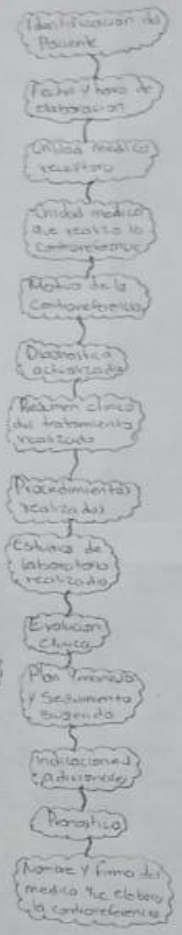 Identificacion del
Paciente
Fecha y hora de
elaboracion
Unidad medica
receptora
Unidad medica
que realiza la
contrareferencia
Motivo de la
contrareferencia
Diagnostico
actualizado
Resumen clinico
del tratamiento
realizado
Procedimientos
realizados
estudios de
laboratorio
realizado
Evolucion
clinica
Plan y manejo
y seguimiento
sugerido
Indicaciones
adicionales
Pronostico
Nombre y firma del
medico que elaboro
la contrareferencia